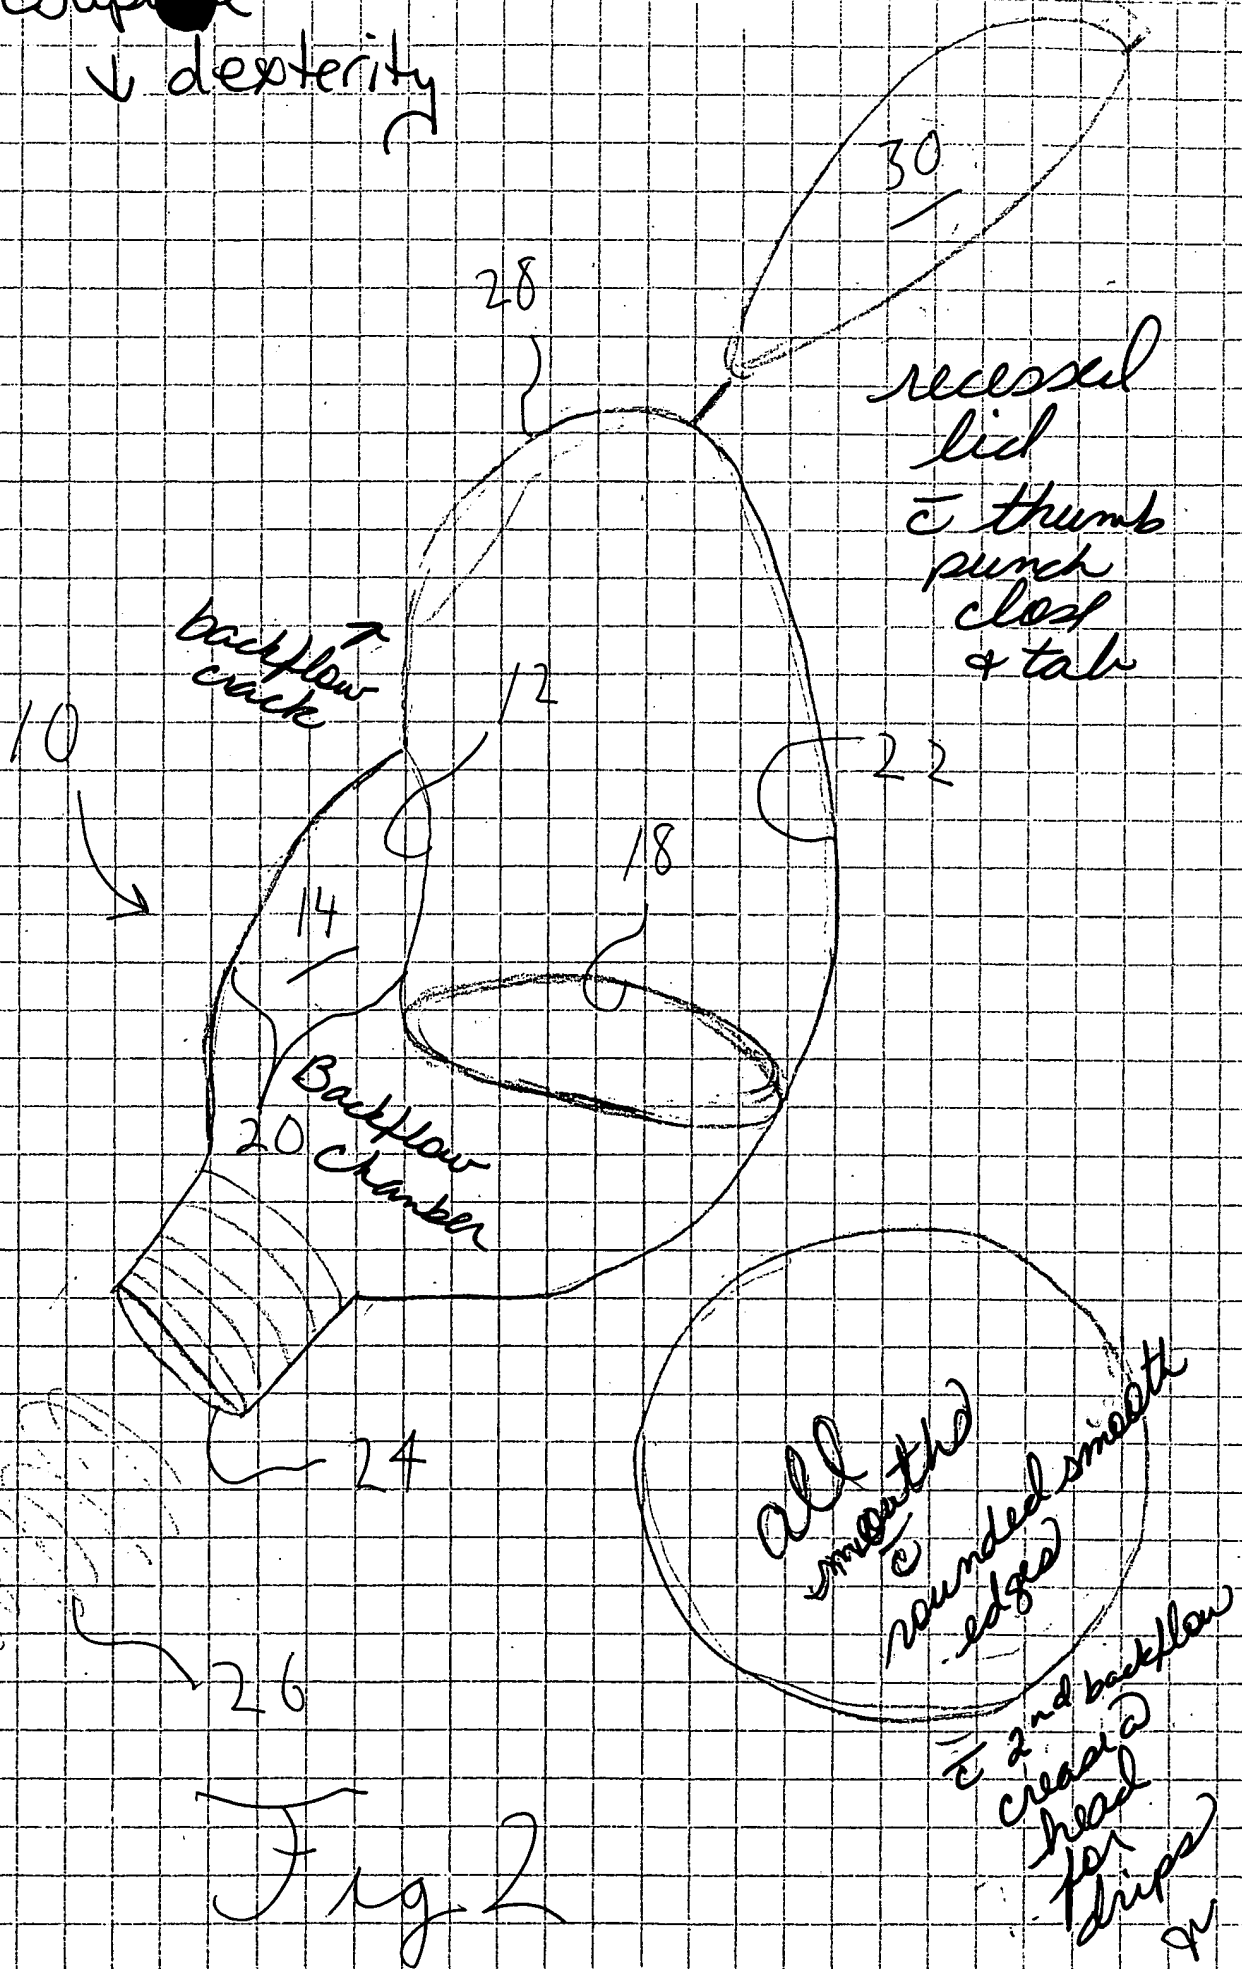 ↓ dexterity
30
28
recessed
lid
c̄ thumb
punch
close
& tab
backflow
crack
12
10
22
18
14
Backflow
chamber
20
24
all
smooth
c̄
rounded smooth
edges
26
c̄ 2nd backflow
crease @
head
for
drips
&
Fig. 2